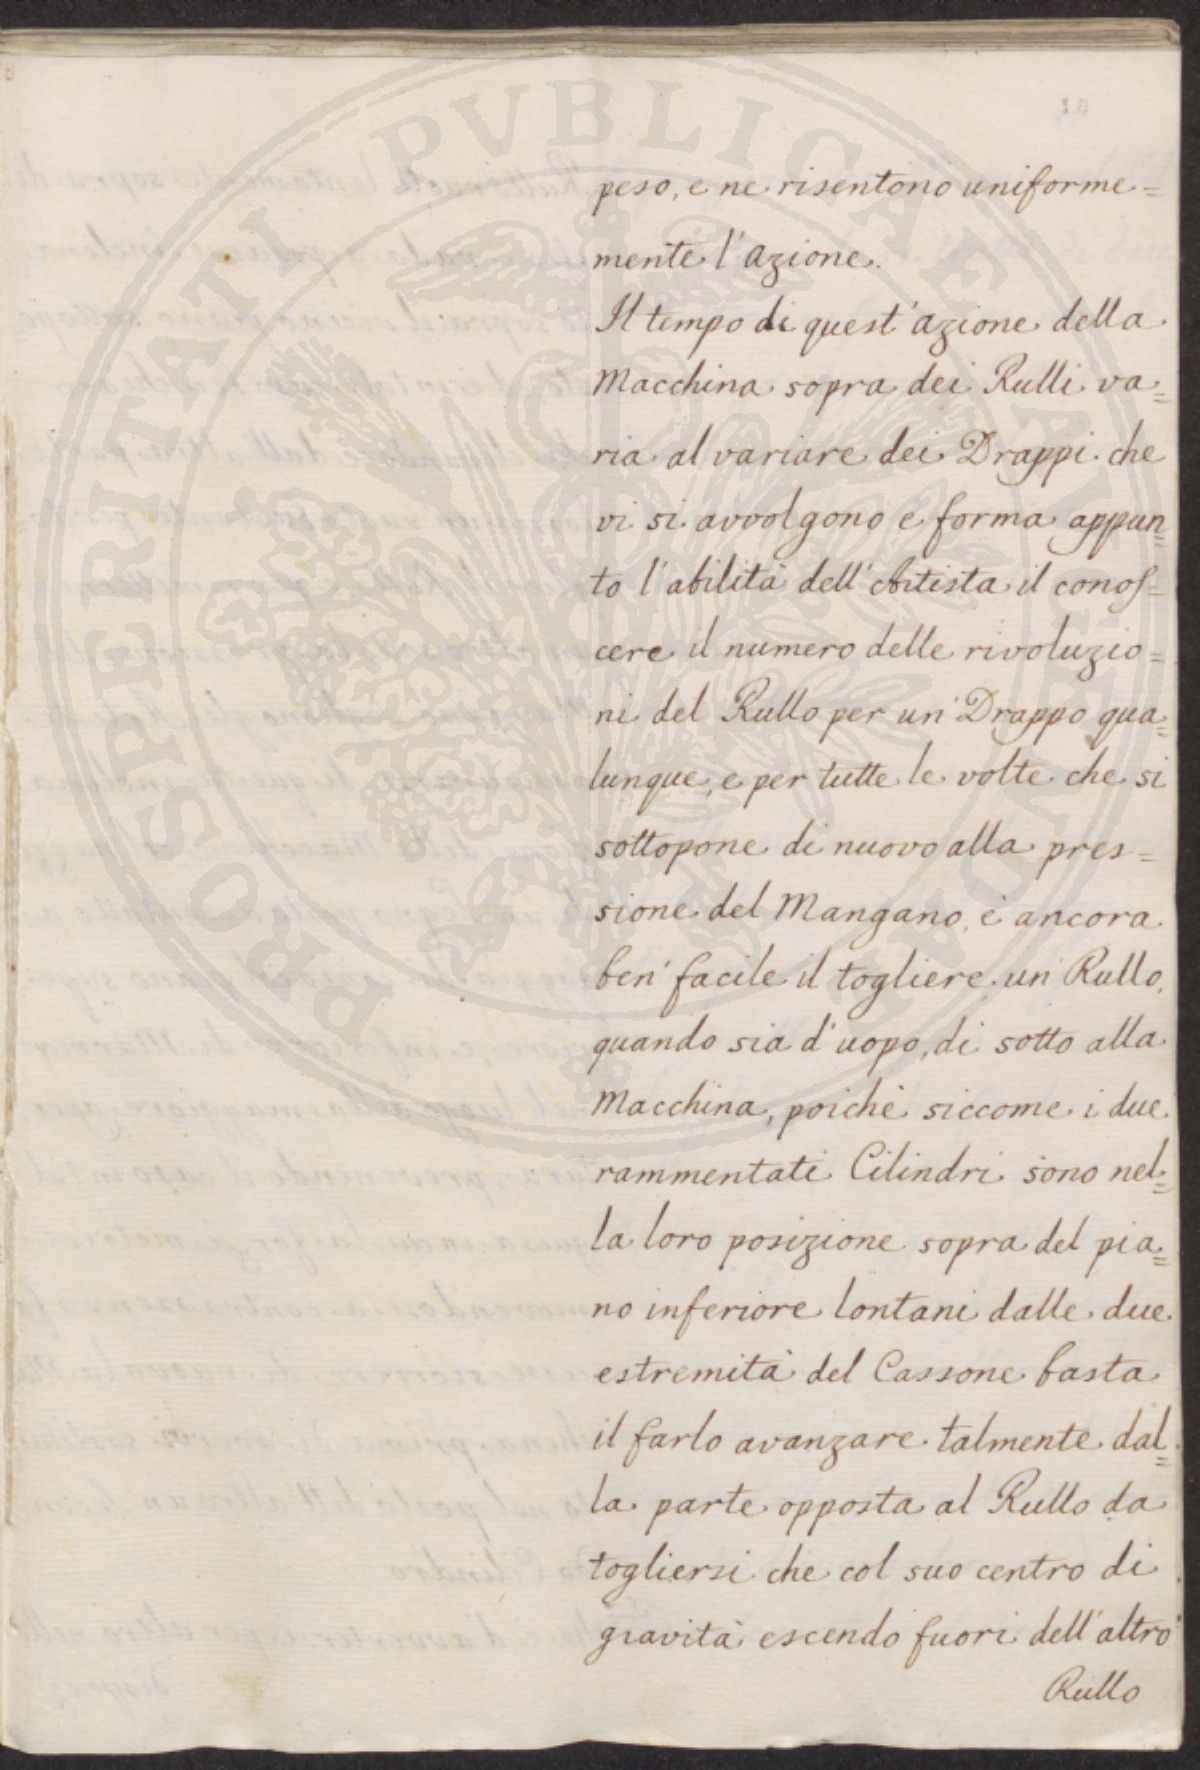 peso, e ne risentono uniforme=
mente l'azione.
Il tempo di quest'azione della
Macchina sopra dei Rulli va=
ria al variare dei Drappi che
vi si avvolgono e forma appun=
to l'abilità dell'Artista il conos=
cere il numero delle rivoluzio=
ni del Rullo per un' Drappo qua=
lunque, e per tutte le volte che si
sottopone di nuovo alla pres=
sione del Mangano, è ancora
ben' facile il togliere un' Rullo,
quando sia d'uopo, di sotto alla
Macchina, poichè siccome i due
rammentati Cilindri sono nel=
la loro posizione sopra del pia=
no inferiore lontani dalle due
estremità del Cassone basta
il farlo avanzare talmente dal=
la parte opposta al Rullo da
togliersi che col suo centro di
gravità escendo fuori dell'altro
Rullo
PROSPERITATI PVBLICAE AVGENDAE